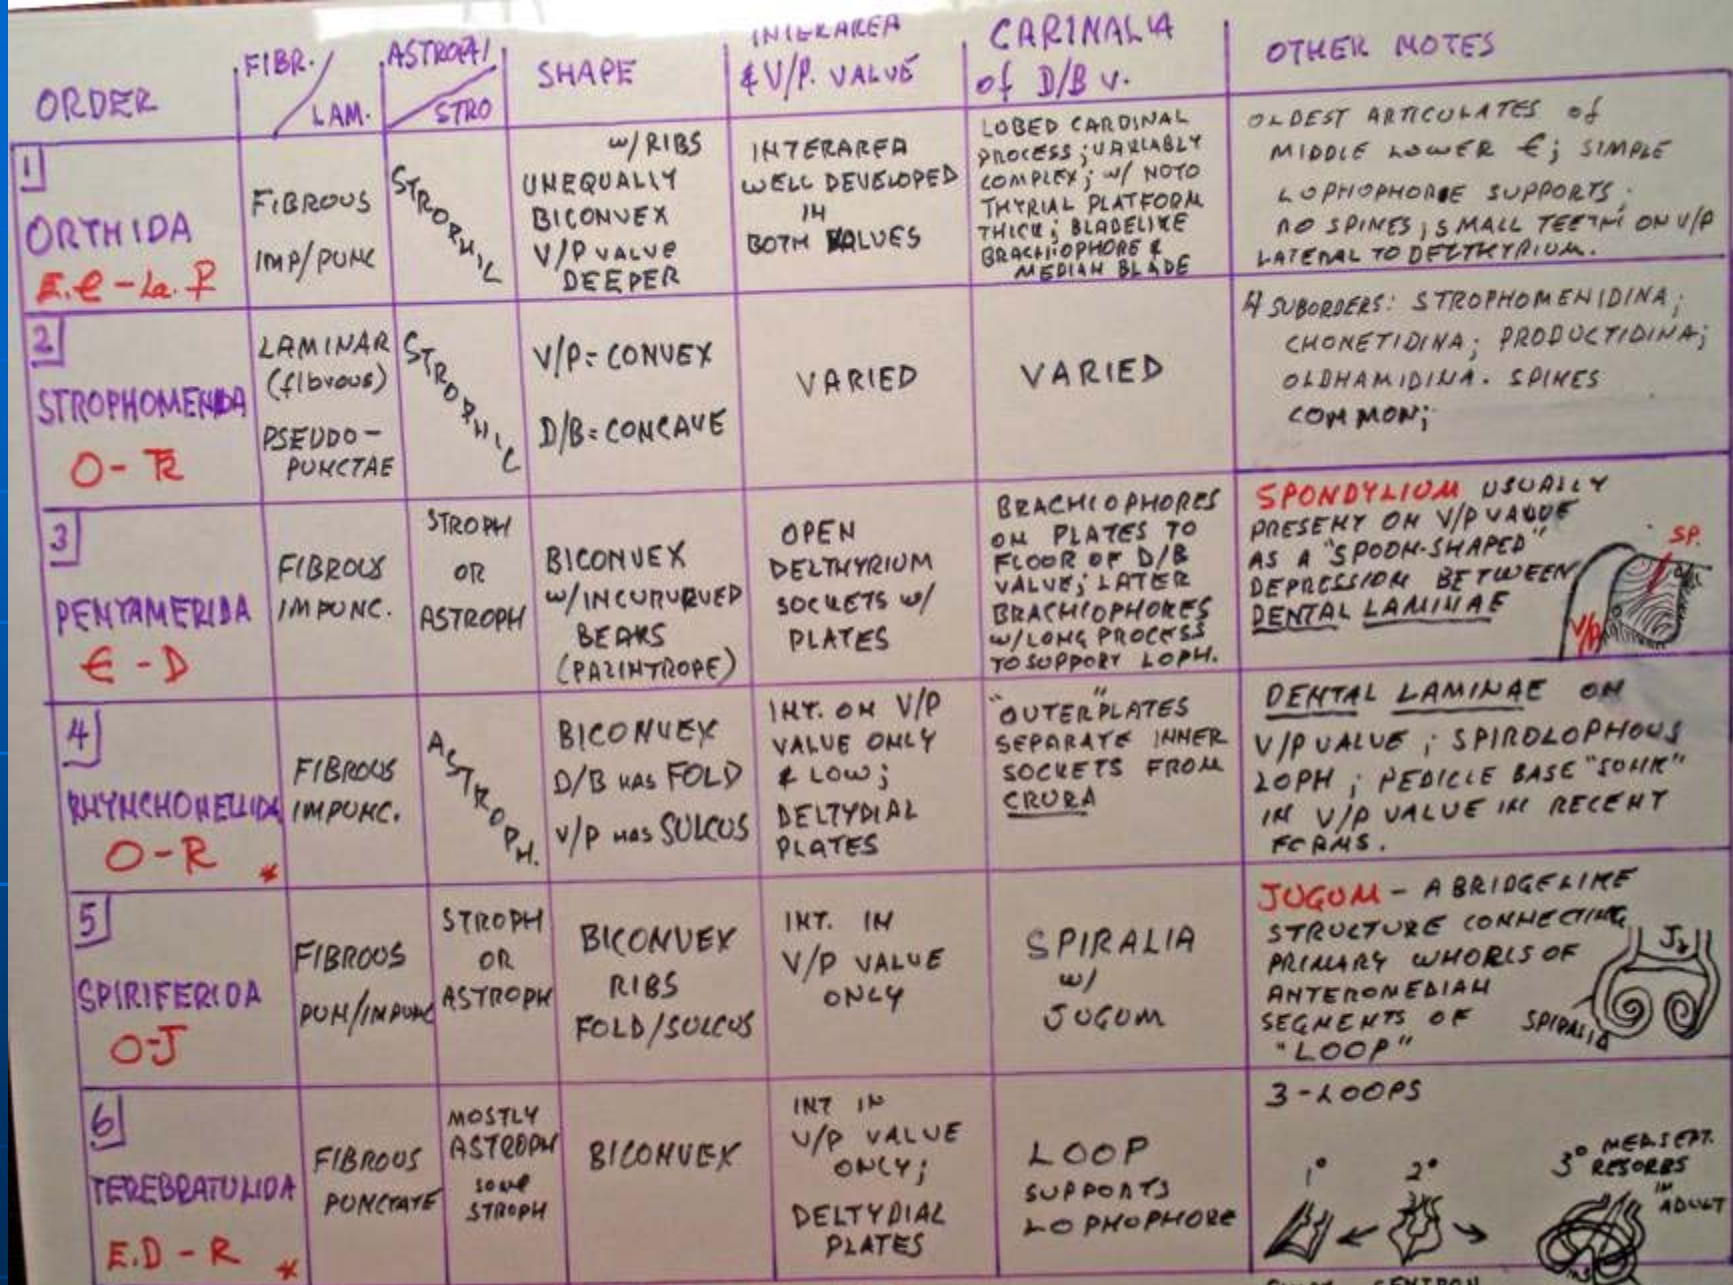 ORDER
FIBR./
LAM.
ASTROPH/
STRO
SHAPE
INTERAREA
& V/P. VALUE
CARINALIA
of D/B v.
OTHER NOTES
1
ORTHIDA
E.Є - La. P
FIBROUS
IMP/PUNC
STROPHIC
w/ RIBS
UNEQUALLY
BICONVEX
V/P VALUE
DEEPER
INTERAREA
WELL DEVELOPED
IN
BOTH VALUES
LOBED CARDINAL
PROCESS; VARIABLY
COMPLEX; w/ NOTO
THYRIAL PLATFORM
THICK; BLADELIKE
BRACHIOPHORE &
MEDIAN BLADE
OLDEST ARTICULATES of
MIDDLE LOWER Є; SIMPLE
LOPHOPHORE SUPPORTS.
NO SPINES; SMALL TEETH ON V/P
LATERAL TO DELTHYRIUM.
2
STROPHOMENIDA
O - TR
LAMINAR
(fibrous)
PSEUDO-
PUNCTAE
STROPHIC
V/P = CONVEX
D/B = CONCAVE
VARIED
VARIED
4 SUBORDERS: STROPHOMENIDINA;
CHONETIDINA; PRODUCTIDINA;
OLDHAMIDINA. SPINES
COMMON;
3
PENTAMERIDA
Є - D
FIBROUS
IMPUNC.
STROPH
OR
ASTROPH
BICONVEX
w/INCURURVED
BEAKS
(PALINTROPE)
OPEN
DELTHYRIUM
SOCKETS w/
PLATES
BRACHIOPHORES
ON PLATES TO
FLOOR OF D/B
VALVE; LATER
BRACHIOPHORES
w/LONG PROCESS
TO SUPPORT LOPH.
SPONDYLIUM USUALLY
PRESENT ON V/P VALUE
AS A "SPOON-SHAPED"
DEPRESSION BETWEEN
DENTAL LAMINAE
SP.
V/P
4
RHYNCHONELLIDA
O - R *
FIBROUS
IMPUNC.
ASTROPH.
BICONVEX
D/B HAS FOLD
V/P HAS SULCUS
INT. ON V/P
VALUE ONLY
& LOW;
DELTYDIAL
PLATES
"OUTER" PLATES
SEPARATE INNER
SOCKETS FROM
CRURA
DENTAL LAMINAE ON
V/P VALUE; SPIROLOPHOUS
LOPH; PEDICLE BASE "SUNK"
IN V/P VALUE IN RECENT
FORMS.
5
SPIRIFERIDA
O-J
FIBROUS
PUN/IMPUNC
STROPH
OR
ASTROPH
BICONVEX
RIBS
FOLD/SULCUS
INT. IN
V/P VALUE
ONLY
SPIRALIA
w/
JUGUM
JUGUM - A BRIDGELIKE
STRUCTURE CONNECTING
PRIMARY WHORLS OF
ANTEROMEDIAN
SEGMENTS OF
"LOOP"
SPIRALIA
6
TEREBRATULIDA
E.D - R *
FIBROUS
PUNCTATE
MOSTLY
ASTROPH
some
STROPH
BICONVEX
INT IN
V/P VALUE
ONLY;
DELTYDIAL
PLATES
LOOP
SUPPORTS
LOPHOPHORE
3-LOOPS
1°
2°
3° MED SEPT.
RESORBS
IN
ADULT